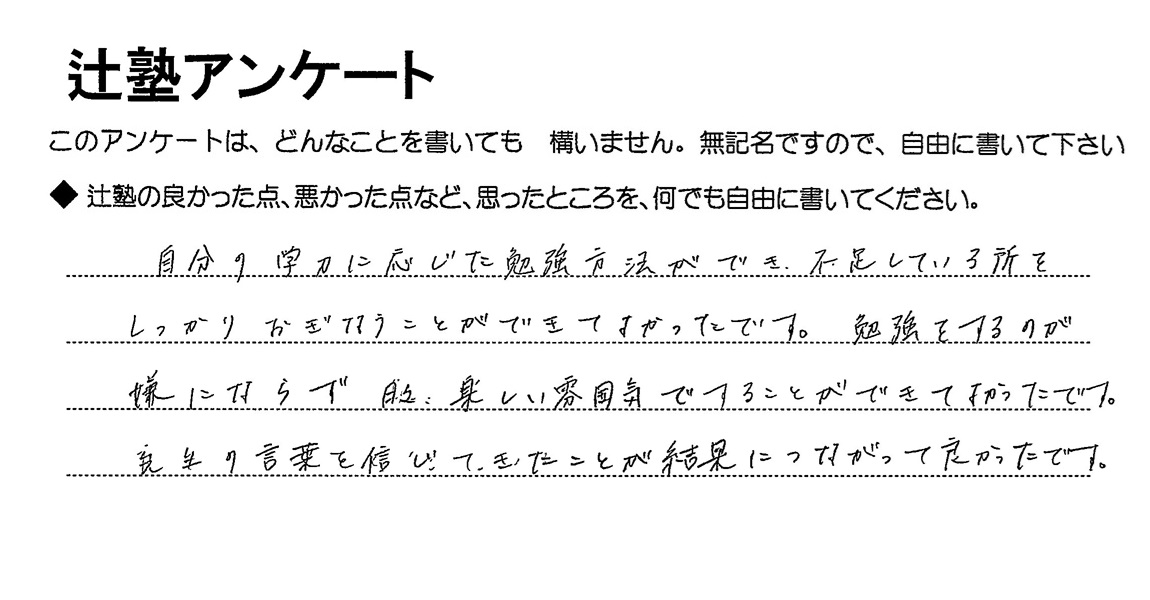 辻塾アンケート
このアンケートは、どんなことを書いても 構いません。無記名ですので、自由に書いて下さい
◆ 辻塾の良かった点、悪かった点など、思ったところを、何でも自由に書いてください。
自分の学力に応じた勉強方法ができ、不足している所を
しっかりおぎなうことができてよかったです。 勉強をするのが
嫌にならず 楽しい雰囲気ですることができてよかったです。
先生の言葉を信じて、きたことが結果につながって良かったです。